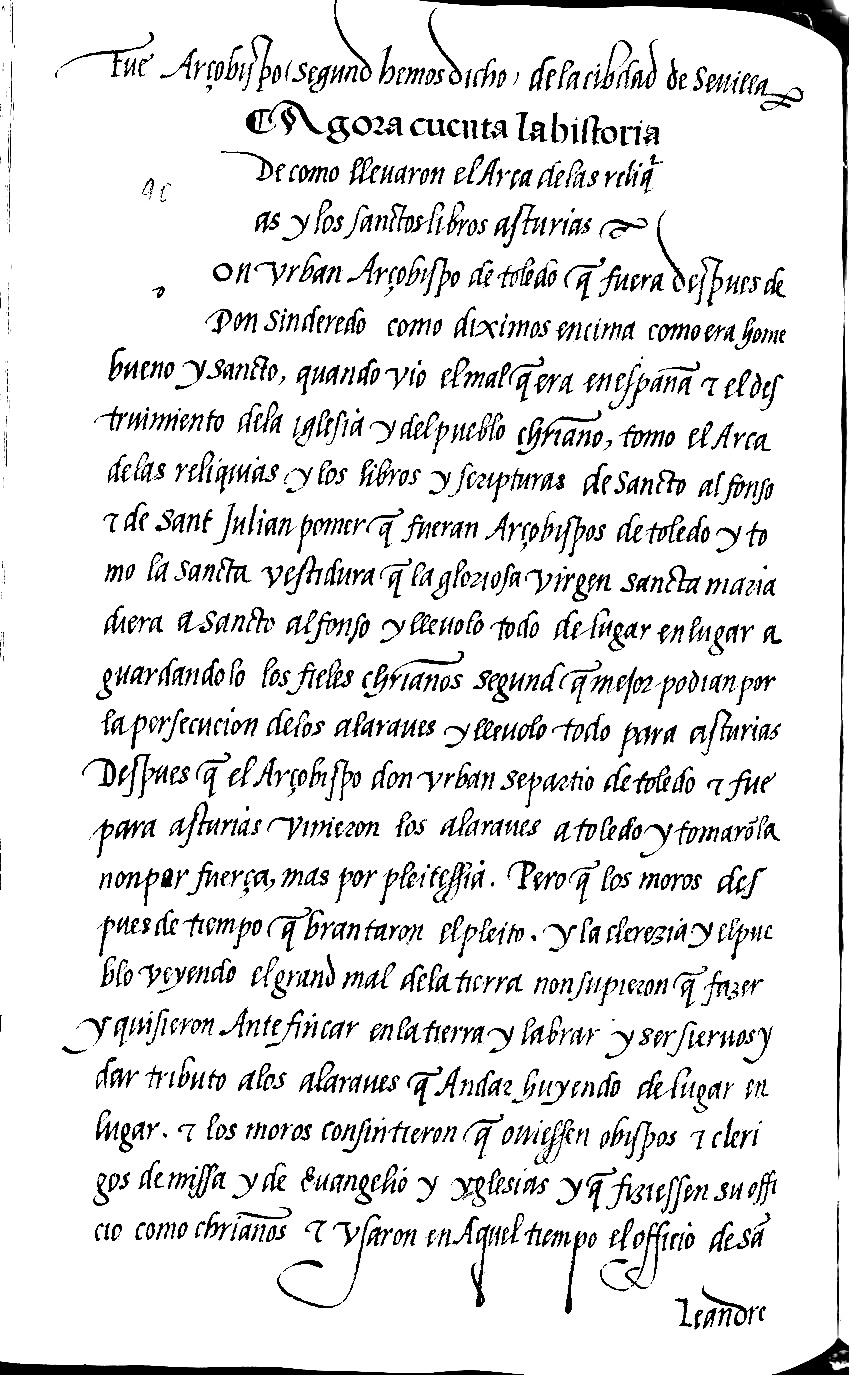 Fue Arçobispo, segund hemos dicho, de la cibdad de Sevilla
Agora cuenta la historia
De como lleuaron el Arca de las reliq̃
as y los sanctos libros asturias
on vrban Arçobispo de toledo q̃ fuera despues de
Don Sinderedo como diximos encima como era home
bueno y sancto, quando vio el mal q̃ era en españa ⁊ el des
truimiento dela iglesia y del pueblo chr̃iano, tomo el Arca
de las reliquias y los libros y scripturas de Sancto alfonso
⁊ de Sant Julian pomer q̃ fueran Arçobispos de toledo y to
mo la sancta vestidura q̃ la gloriosa virgen sancta maria
diera a Sancto alfonso y lleuolo todo de lugar en lugar a
guardandolo los fieles chr̃ianos segund q̃ mejor podian por
la persecucion de los alaraues y lleuolo todo para asturias
Despues q̃ el Arçobispo don vrban se partio de toledo ⁊ fue
para asturias vinieron los alaraues a toledo y tomarõ la
non por fuerça, mas por pleitessia. Pero q̃ los moros des
pues de tiempo q̃brantaron el pleito. y la clerezia y el pue
blo veyendo el grand mal dela tierra non supieron q̃ fazer
y quisieron Ante fincar en la tierra y labrar y ser sieruos y
dar tributo alos alaraues q̃ Andar huyendo de lugar en
lugar. ⁊ los moros consintieron q̃ ouiessen obispos ⁊ cleri
gos de missa y de Euangelio y yglesias y q̃ fiziessen su offi
cio como chr̃ianos ⁊ vsaron en Aquel tiempo el officio de sã
Leandre